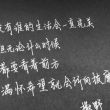 没有谁的生活会一直完美
但无论什么时候
都要看着前方
满怀希望就会所向披靡